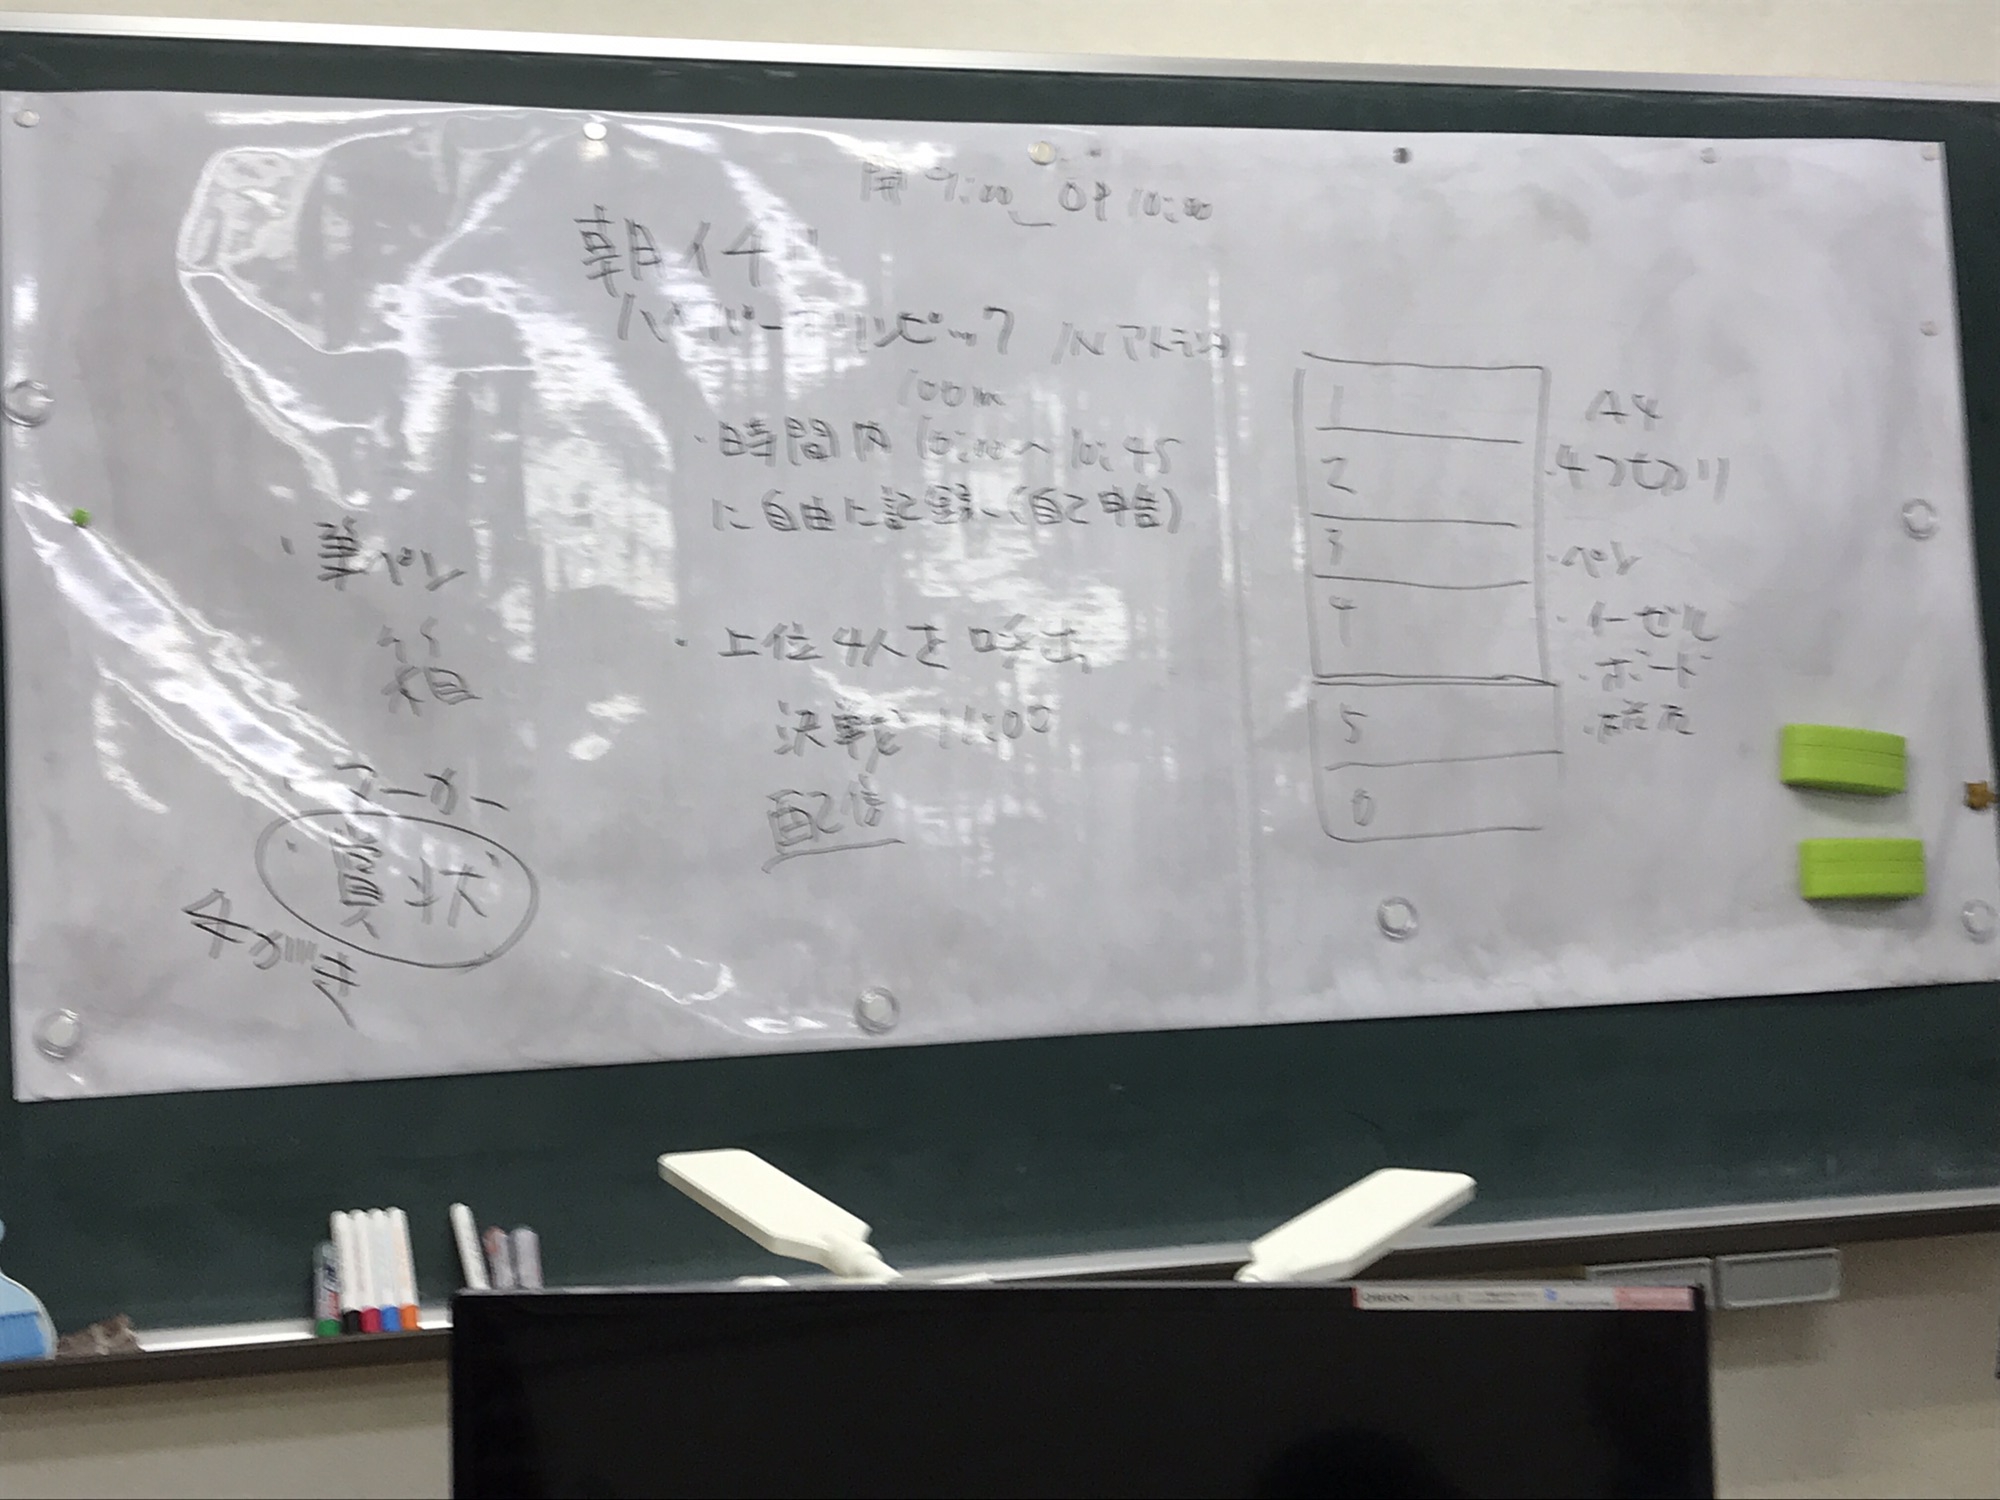 開 9:00 OP 10:00
朝イチ!!
ハイパーオリンピック INアトランタ
100m
・時間内 10:00〜10:45
に自由に記録(自己申告)
・上位4人を呼出
決戦 11:00
配信
・筆ペン
箱
・マーカー
賞状
1
2
3
4
5
6
A4
・4つ切り
・ペン
・イーゼル
・ボード